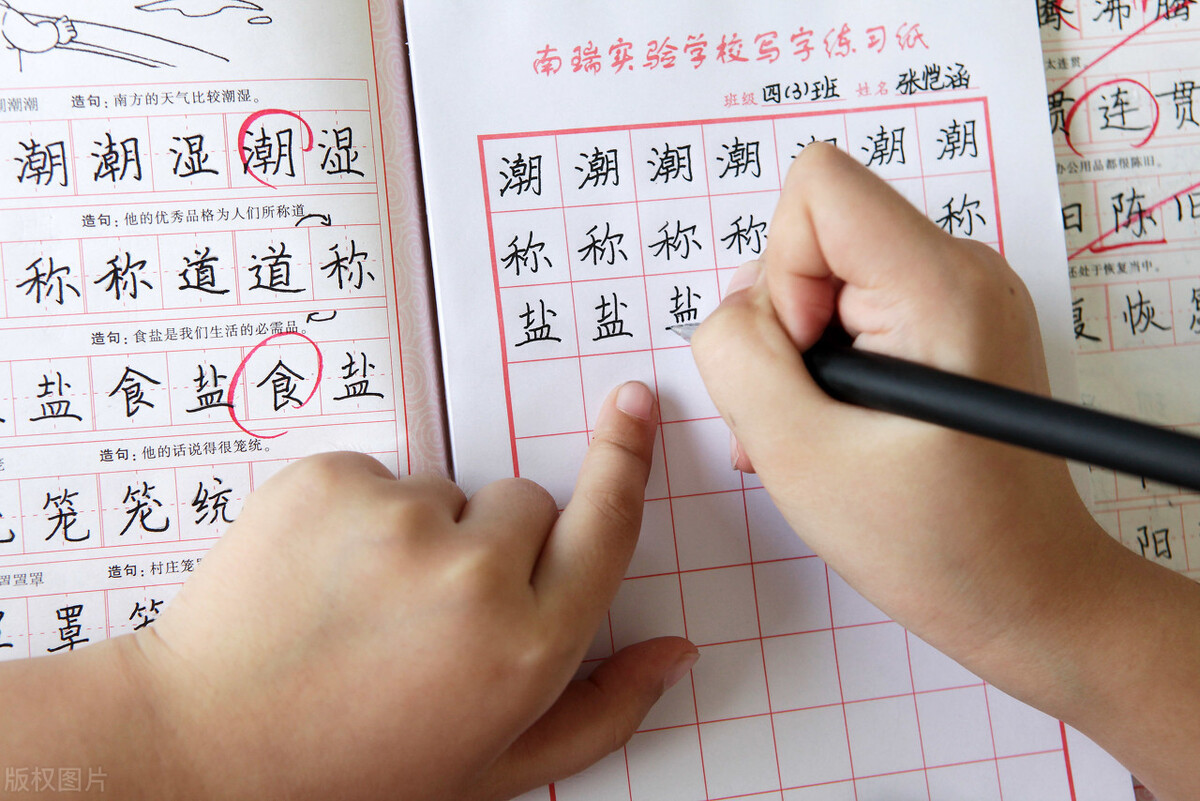 潮潮 造句：南方的天气比较潮湿。
潮 潮 湿 潮 湿
造句：他的优秀品格为人们所称道
称 称 道 道 称
造句：食盐是我们生活的必需品。
盐 食 盐 食 盐
造句：他的话说得很笼统。
笼 笼 统
罩罩罩 造句：村庄笼
罩 笼
南瑞实验学校写字练习纸
班级 四(3)班 姓名 张恺涵
潮 潮 潮 潮 潮 潮
称 称 称 称 称
盐 盐 盐
沸 腾
连贯
贯 连 贯
办公用品都很陈旧。
旧 陈 旧
还处于恢复当中。
复 恢
阳
版权图片